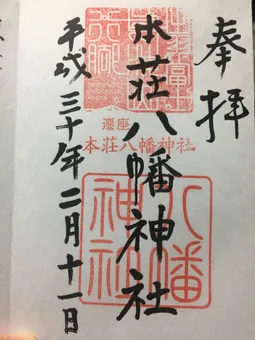 奉拝
本荘八幡神社
遷座
本荘八幡神社
八幡
神社
平成三十年二月十一日